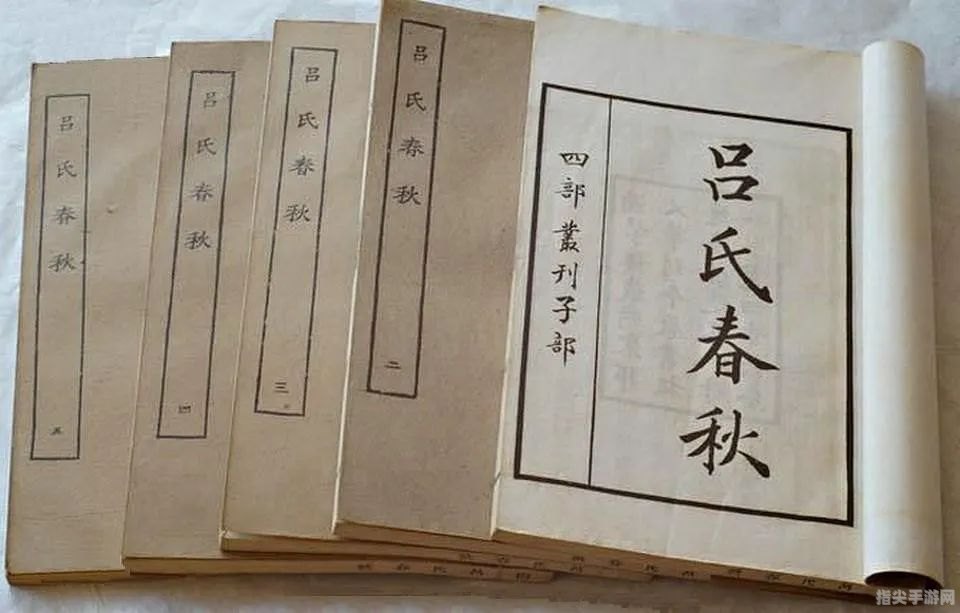 吕氏春秋
四部叢刊子部
吕氏春秋
二
吕氏春秋
三
吕氏春秋
四
吕氏春秋
五
指尖手游网